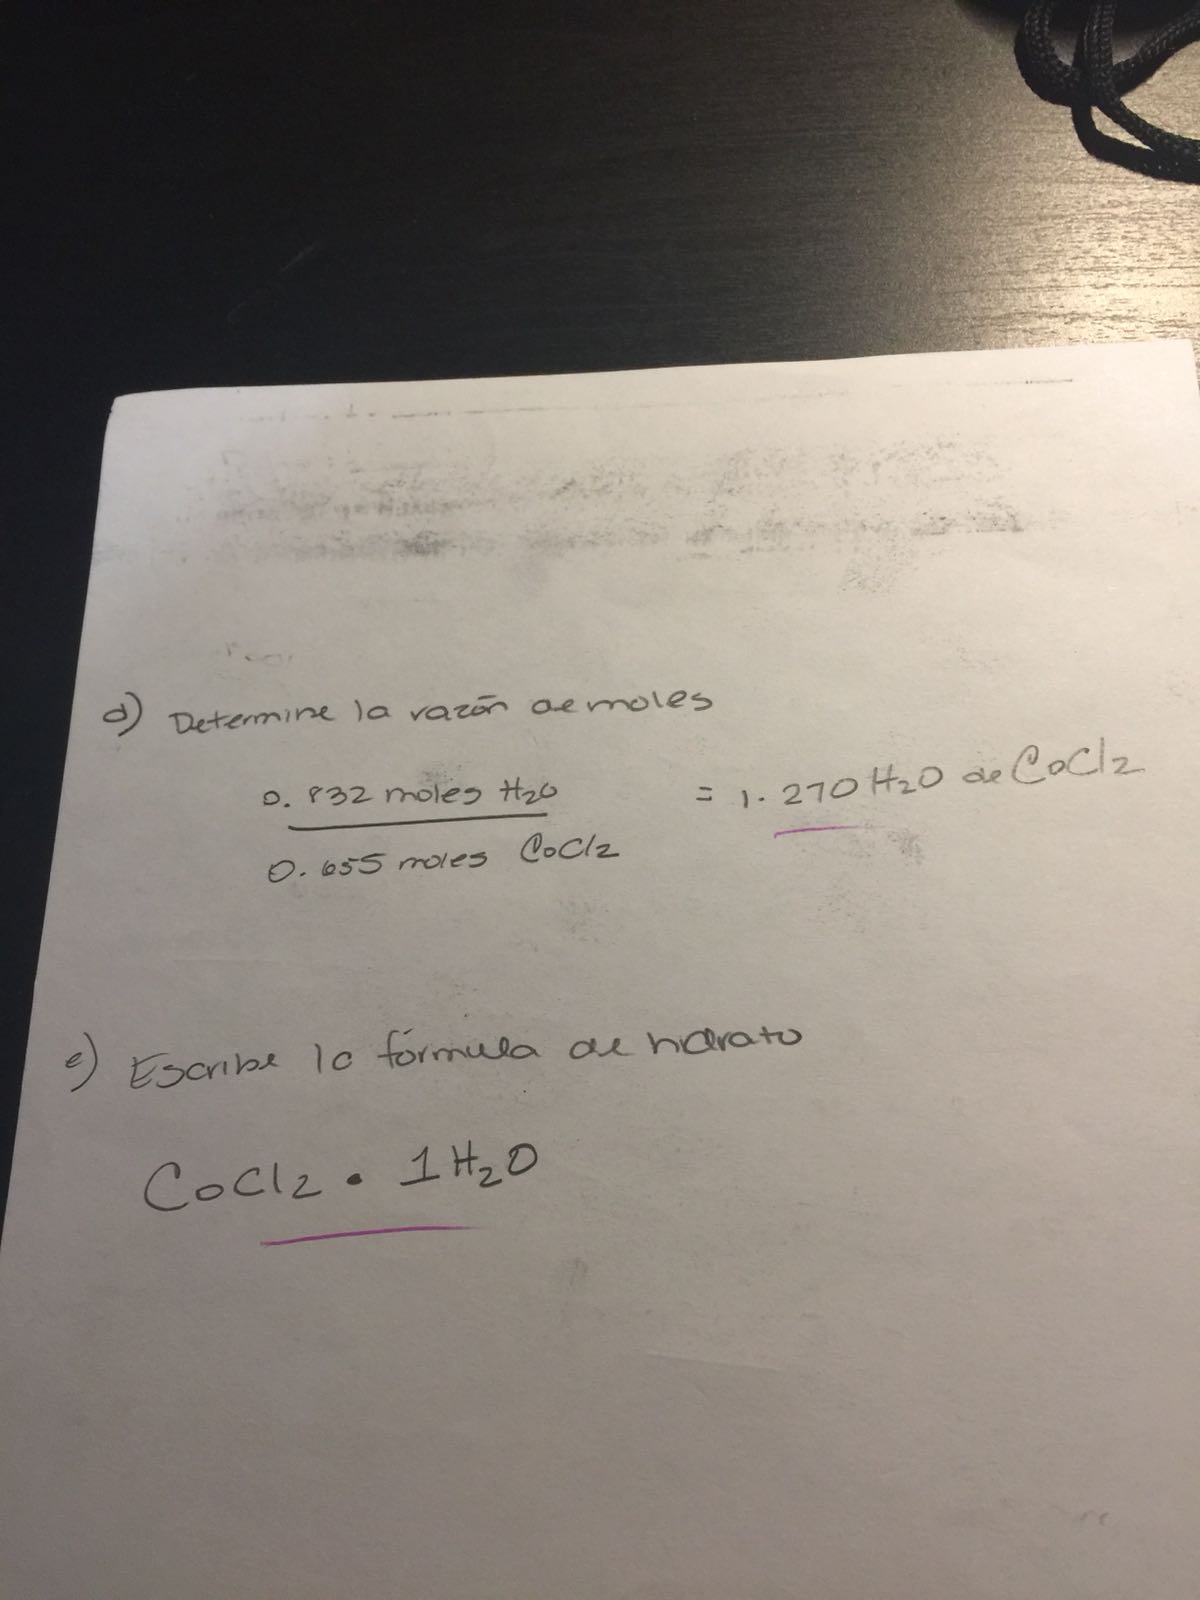 d) Determine la razón de moles
0.832 moles H2O
= 1.270 H2O de CoCl2
0.655 moles CoCl2
e) Escribe la fórmula de hidrato
CoCl2 • 1H2O